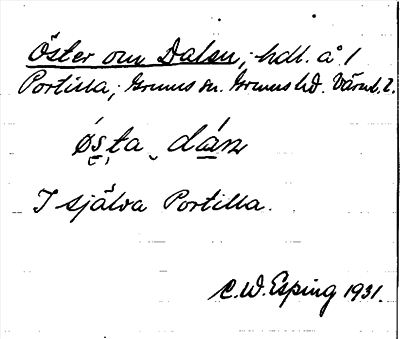 Öster om Dalen, hdl. å 1
Portilla, Grums sn. Grums hd. Värml. l.
ó̤s̤ta dán
I själva Portilla.
C.W. Esping 1931.